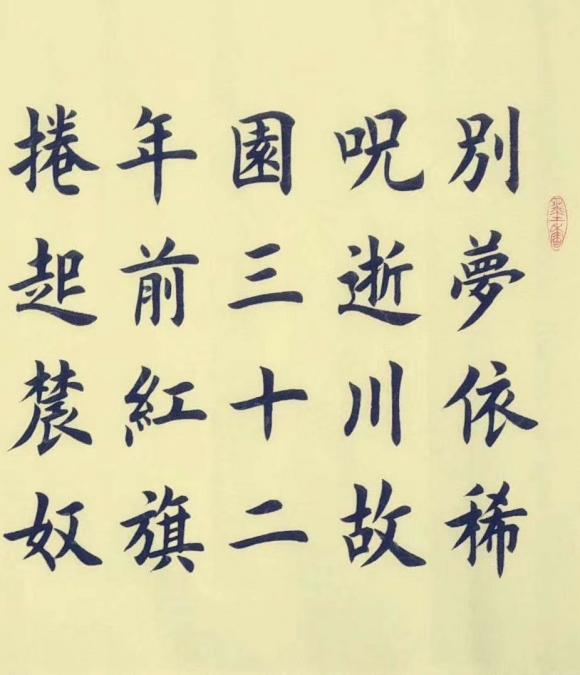 別夢依稀
呪逝川故
園三十二
年前紅旗
捲起農奴